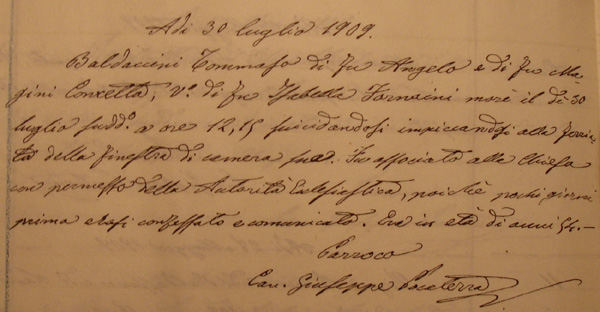 Adi 30 luglio 1909.
Baldaccini Tommaso di fu Angelo e di fu Ma-
gini Concetta, Vº. di fu Isabella Fornaini morè il dì 30
luglio suddº. a ore 12,15 suicidandosi impiccandosi alla ferria-
ta della finestra di camera sua. Fu associato alla Chiesa
con permesso della Autorità Eclesiastica, poichè pochi giorni
prima erasi confessato e comunicato. Era in età di anni 54.—
Parroco
Can. Giuseppe Pacaterra